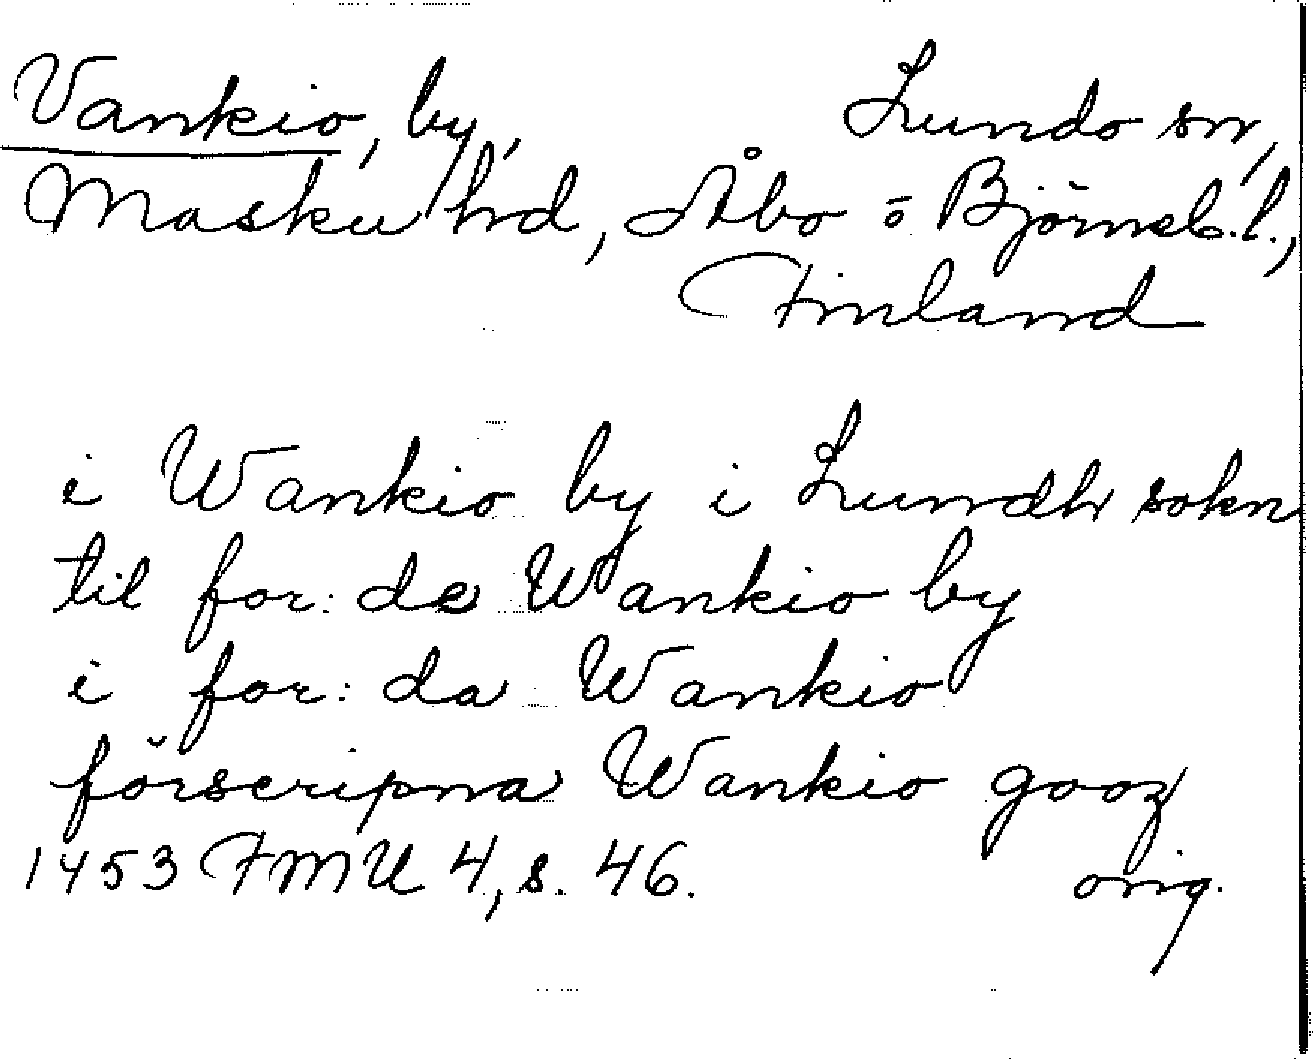 Vankio, by, Lundo sn,
Masku hd, Åbo o Björneb. l.,
Finland
i Wankio by i Lundh sokn
til for: de Wankio by
i for: da Wankio
förscripna Wankio gooz
1453 FMU 4, s. 46. orig.